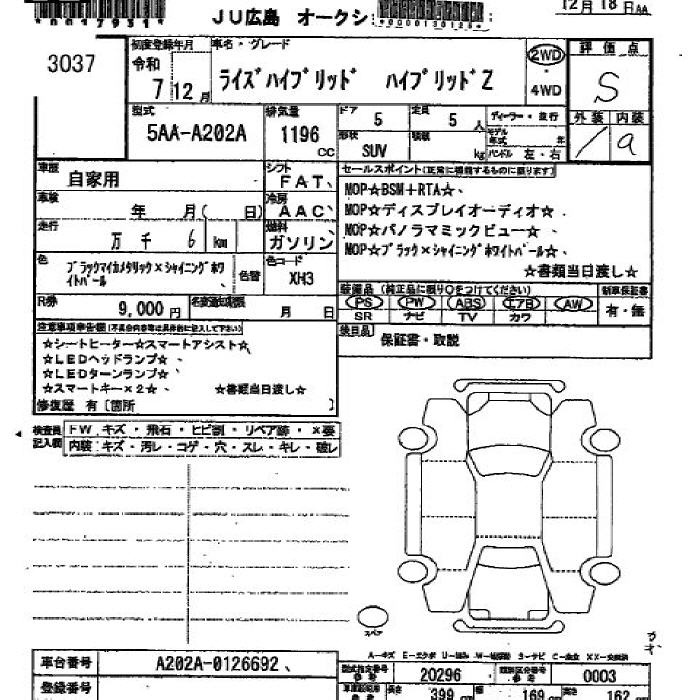 *001793*
*0000130128*
12月18日AA
JU広島 オークシ
3037
初度登録年月
令和
7 12 月
車名・グレード
ライズハイブリッド ハイブリッドZ
2WD
・
4WD
評価点
S
外装 内装
/ a
型式
5AA-A202A
排気量
1196
cc
ドア
5
定員
5 人
形状
SUV
積載
kg
ディーラー・並行
モデル
年式 年
ハンドル 左・右
車歴
自家用
シフト
FAT、
車検
年 月( 日)
冷房
AAC、
走行
万 千 6 km
燃料
ガソリン
色
ブラックマイカメタリック×シャイニングホワ
イトパール
色替
色コード
XH3
R券
9,000 円
名変通知期限
月 日
セールスポイント(正常に機能するものに限ります)
MOP☆BSM+RTA☆、
MOP☆ディスプレイオーディオ☆、
MOP☆パノラマミックビュー☆、
MOP☆ブラック×シャイニングホワイトパール☆、
☆書類当日渡し☆
装備品 (純正品に限り○をつけてください)
新車保証書
PS PW ABS エアB AW
有・無
SR ナビ TV カワ
装目品
保証書・取説
注意事項申告欄(不具合内容等は具体的に記入して下さい)
☆シートヒーター☆スマートアシスト☆、
☆LEDヘッドランプ☆、
☆LEDターンランプ☆、
☆スマートキー×2☆、 ☆書類当日渡し☆
修復歴 有[箇所 ]
検査員
記入欄
FW キズ・飛石・ヒビ割・リペア跡・×要
内装 キズ・汚レ・コゲ・穴・スレ・キレ・破レ
スペア
車台番号
A202A-0126692、
登録番号
型式指定番号
参考
20296
類別区分番号
参考
0003
長さ
399 cm
幅
169 cm
高さ
162 cm